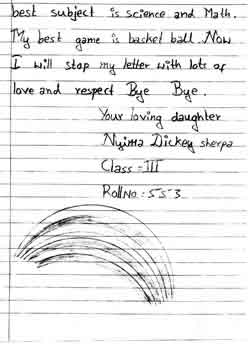 best subject is science and Math.
My best game is backet ball. Now
I will stop my letter with lots of
love and respect Bye Bye.
Your loving daughter
Nyima Dickey sherpa
Class - III
Roll No. : 553